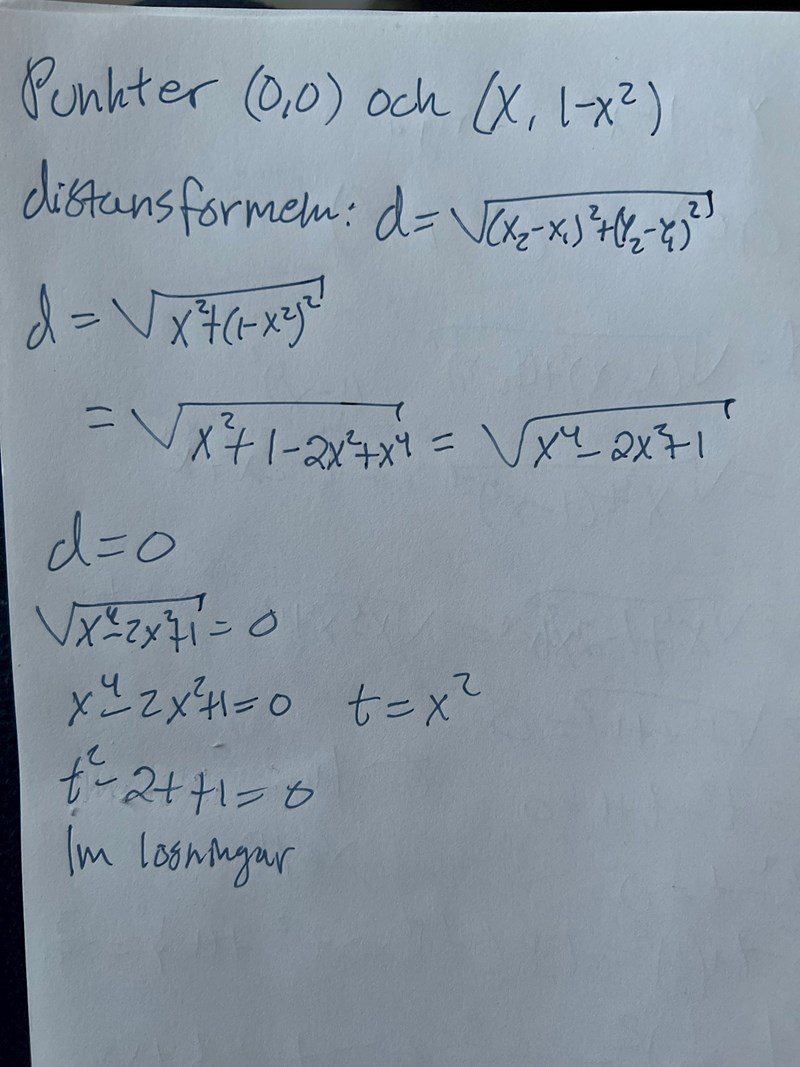 Punkter (0,0) och (x, 1-x²)
distansformeln: d=√((x₂-x₁)²+(y₂-y₁)²)
d = √(x²+(1-x²)²)
= √(x²+1-2x²+x⁴) = √(x⁴-2x²+1)
d=0
√(x⁴-2x²+1) = 0
x⁴-2x²+1=0 t=x²
t²-2t+1=0
Im lösningar